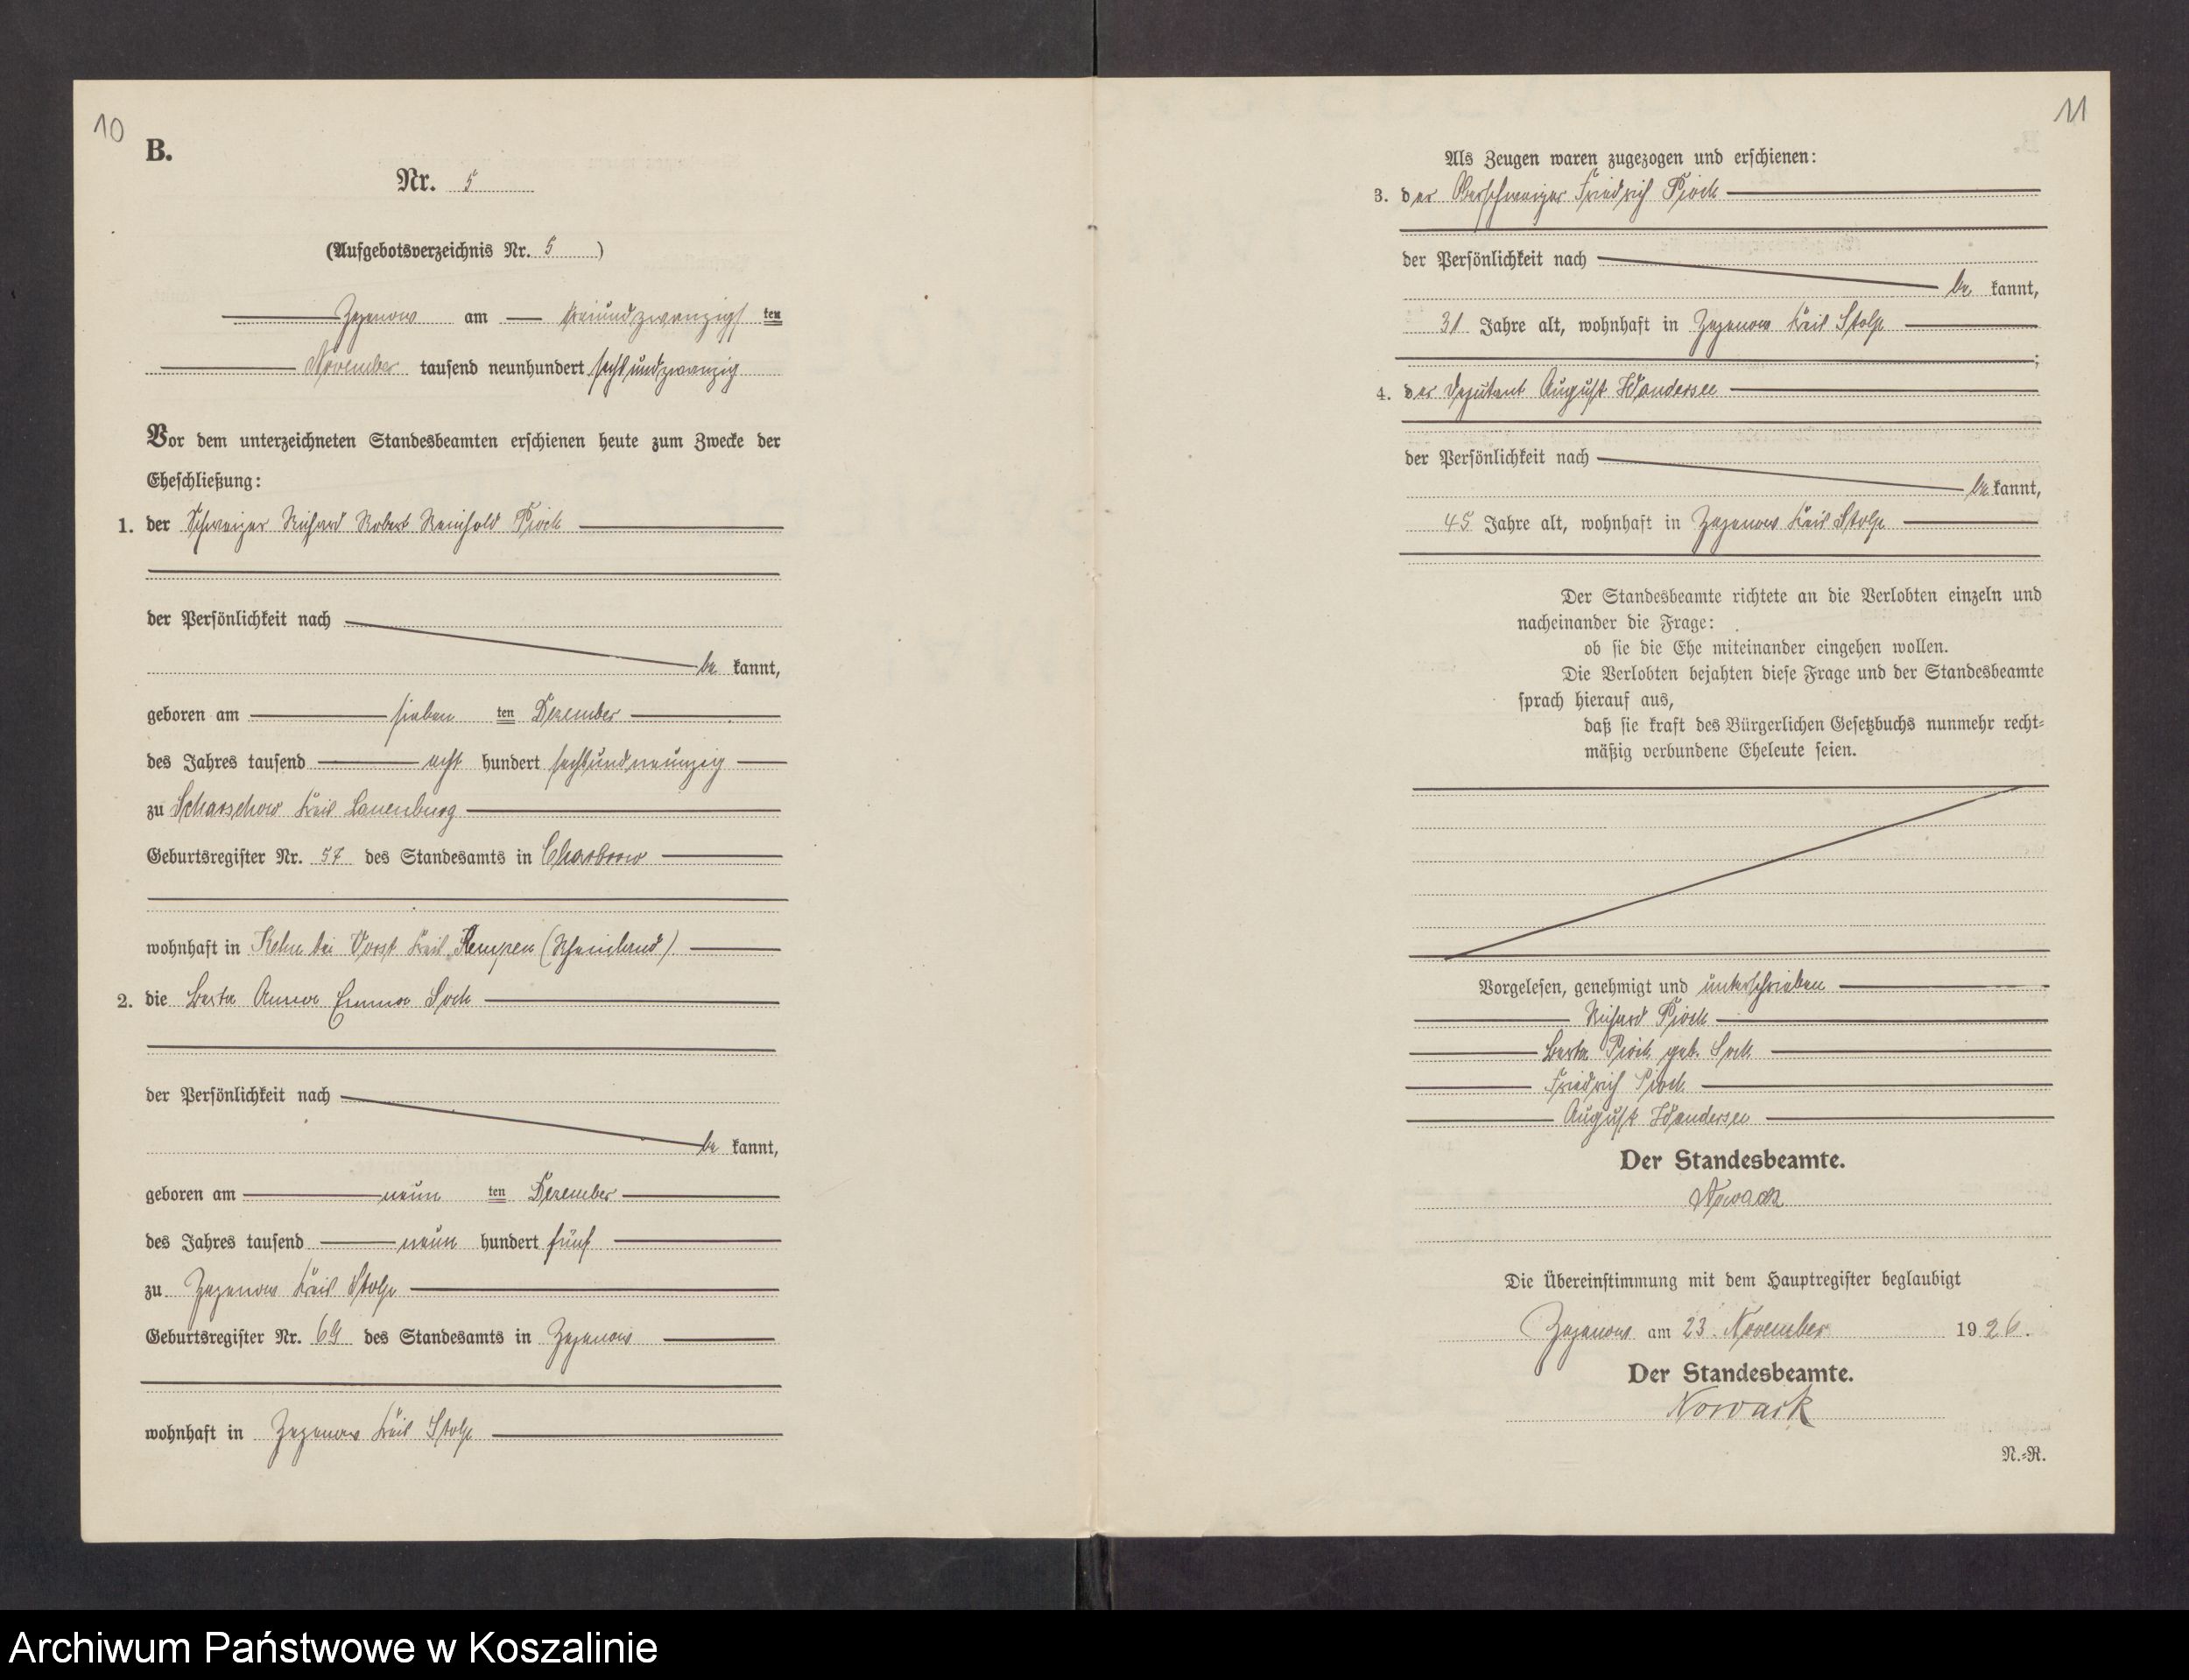 10
B.
Nr. 5
(Aufgebotsverzeichnis Nr. 5)
Zezenow am dreiundzwanzigsten
November tausend neunhundert sechsundzwanzig
Vor dem unterzeichneten Standesbeamten erschienen heute zum Zwecke der
Eheschließung:
1. der Schweizer Richard Robert Reinhold Pioch
der Persönlichkeit nach
be kannt,
geboren am sieben ten Dezember
des Jahres tausend acht hundert sechsundneunzig
zu Scharschow Kreis Lauenburg
Geburtsregister Nr. 57 des Standesamts in Charbrow
wohnhaft in Kehn bei Vorst Kreis Kempen (Rheinland)
2. die Berta Anna Emma Sock
der Persönlichkeit nach
be kannt,
geboren am neun ten Dezember
des Jahres tausend neun hundert fünf
zu Zezenow Kreis Stolp
Geburtsregister Nr. 69 des Standesamts in Zezenow
wohnhaft in Zezenow Kreis Stolp
11
Als Zeugen waren zugezogen und erschienen:
3. der Oberschweizer Friedrich Pioch
der Persönlichkeit nach
be kannt,
31 Jahre alt, wohnhaft in Zezenow Kreis Stolp
;
4. der Deputant August Wandersee
der Persönlichkeit nach
be kannt,
45 Jahre alt, wohnhaft in Zezenow Kreis Stolp
Der Standesbeamte richtete an die Verlobten einzeln und
nacheinander die Frage:
ob sie die Ehe miteinander eingehen wollen.
Die Verlobten bejahten diese Frage und der Standesbeamte
sprach hierauf aus,
daß sie kraft des Bürgerlichen Gesetzbuchs nunmehr recht-
mäßig verbundene Eheleute seien.
Vorgelesen, genehmigt und unterschrieben
Richard Pioch
Berta Pioch geb. Sock
Friedrich Pioch
August Wandersee
Der Standesbeamte.
Nowack
Die Übereinstimmung mit dem Hauptregister beglaubigt
Zezenow am 23. November 1926.
Der Standesbeamte.
Nowack
N.-R.
Archiwum Państwowe w Koszalinie